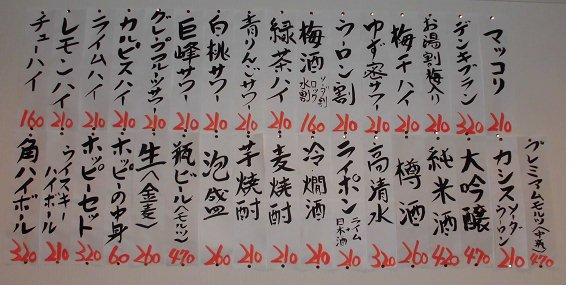 マッコリ
210
デンキブラン
320
お湯割梅入り
210
梅チハイ
210
ゆず蜜サワー
210
ウーロン割
210
梅酒
ソーダ割
ロック
水割
160
緑茶ハイ
210
青りんごサワー
210
白桃サワー
210
巨峰サワー
210
グレープフルーツサワー
210
カルピスハイ
210
ライムハイ
210
レモンハイ
210
チューハイ
160
プレミアムモルツ(中瓶)
470
カシス
ソーダー
ウーロン
210
大吟醸
470
純米酒
420
樽酒
260
高清水
320
ライポン
ライム
日本酒
210
冷燗酒
210
麦焼酎
210
芋焼酎
210
泡盛
260
瓶ビール(モルツ)
470
生(金麦)
260
ホッピーの中身
60
ホッピーセット
320
ウイスキー
ハイボール
210
角ハイボール
320